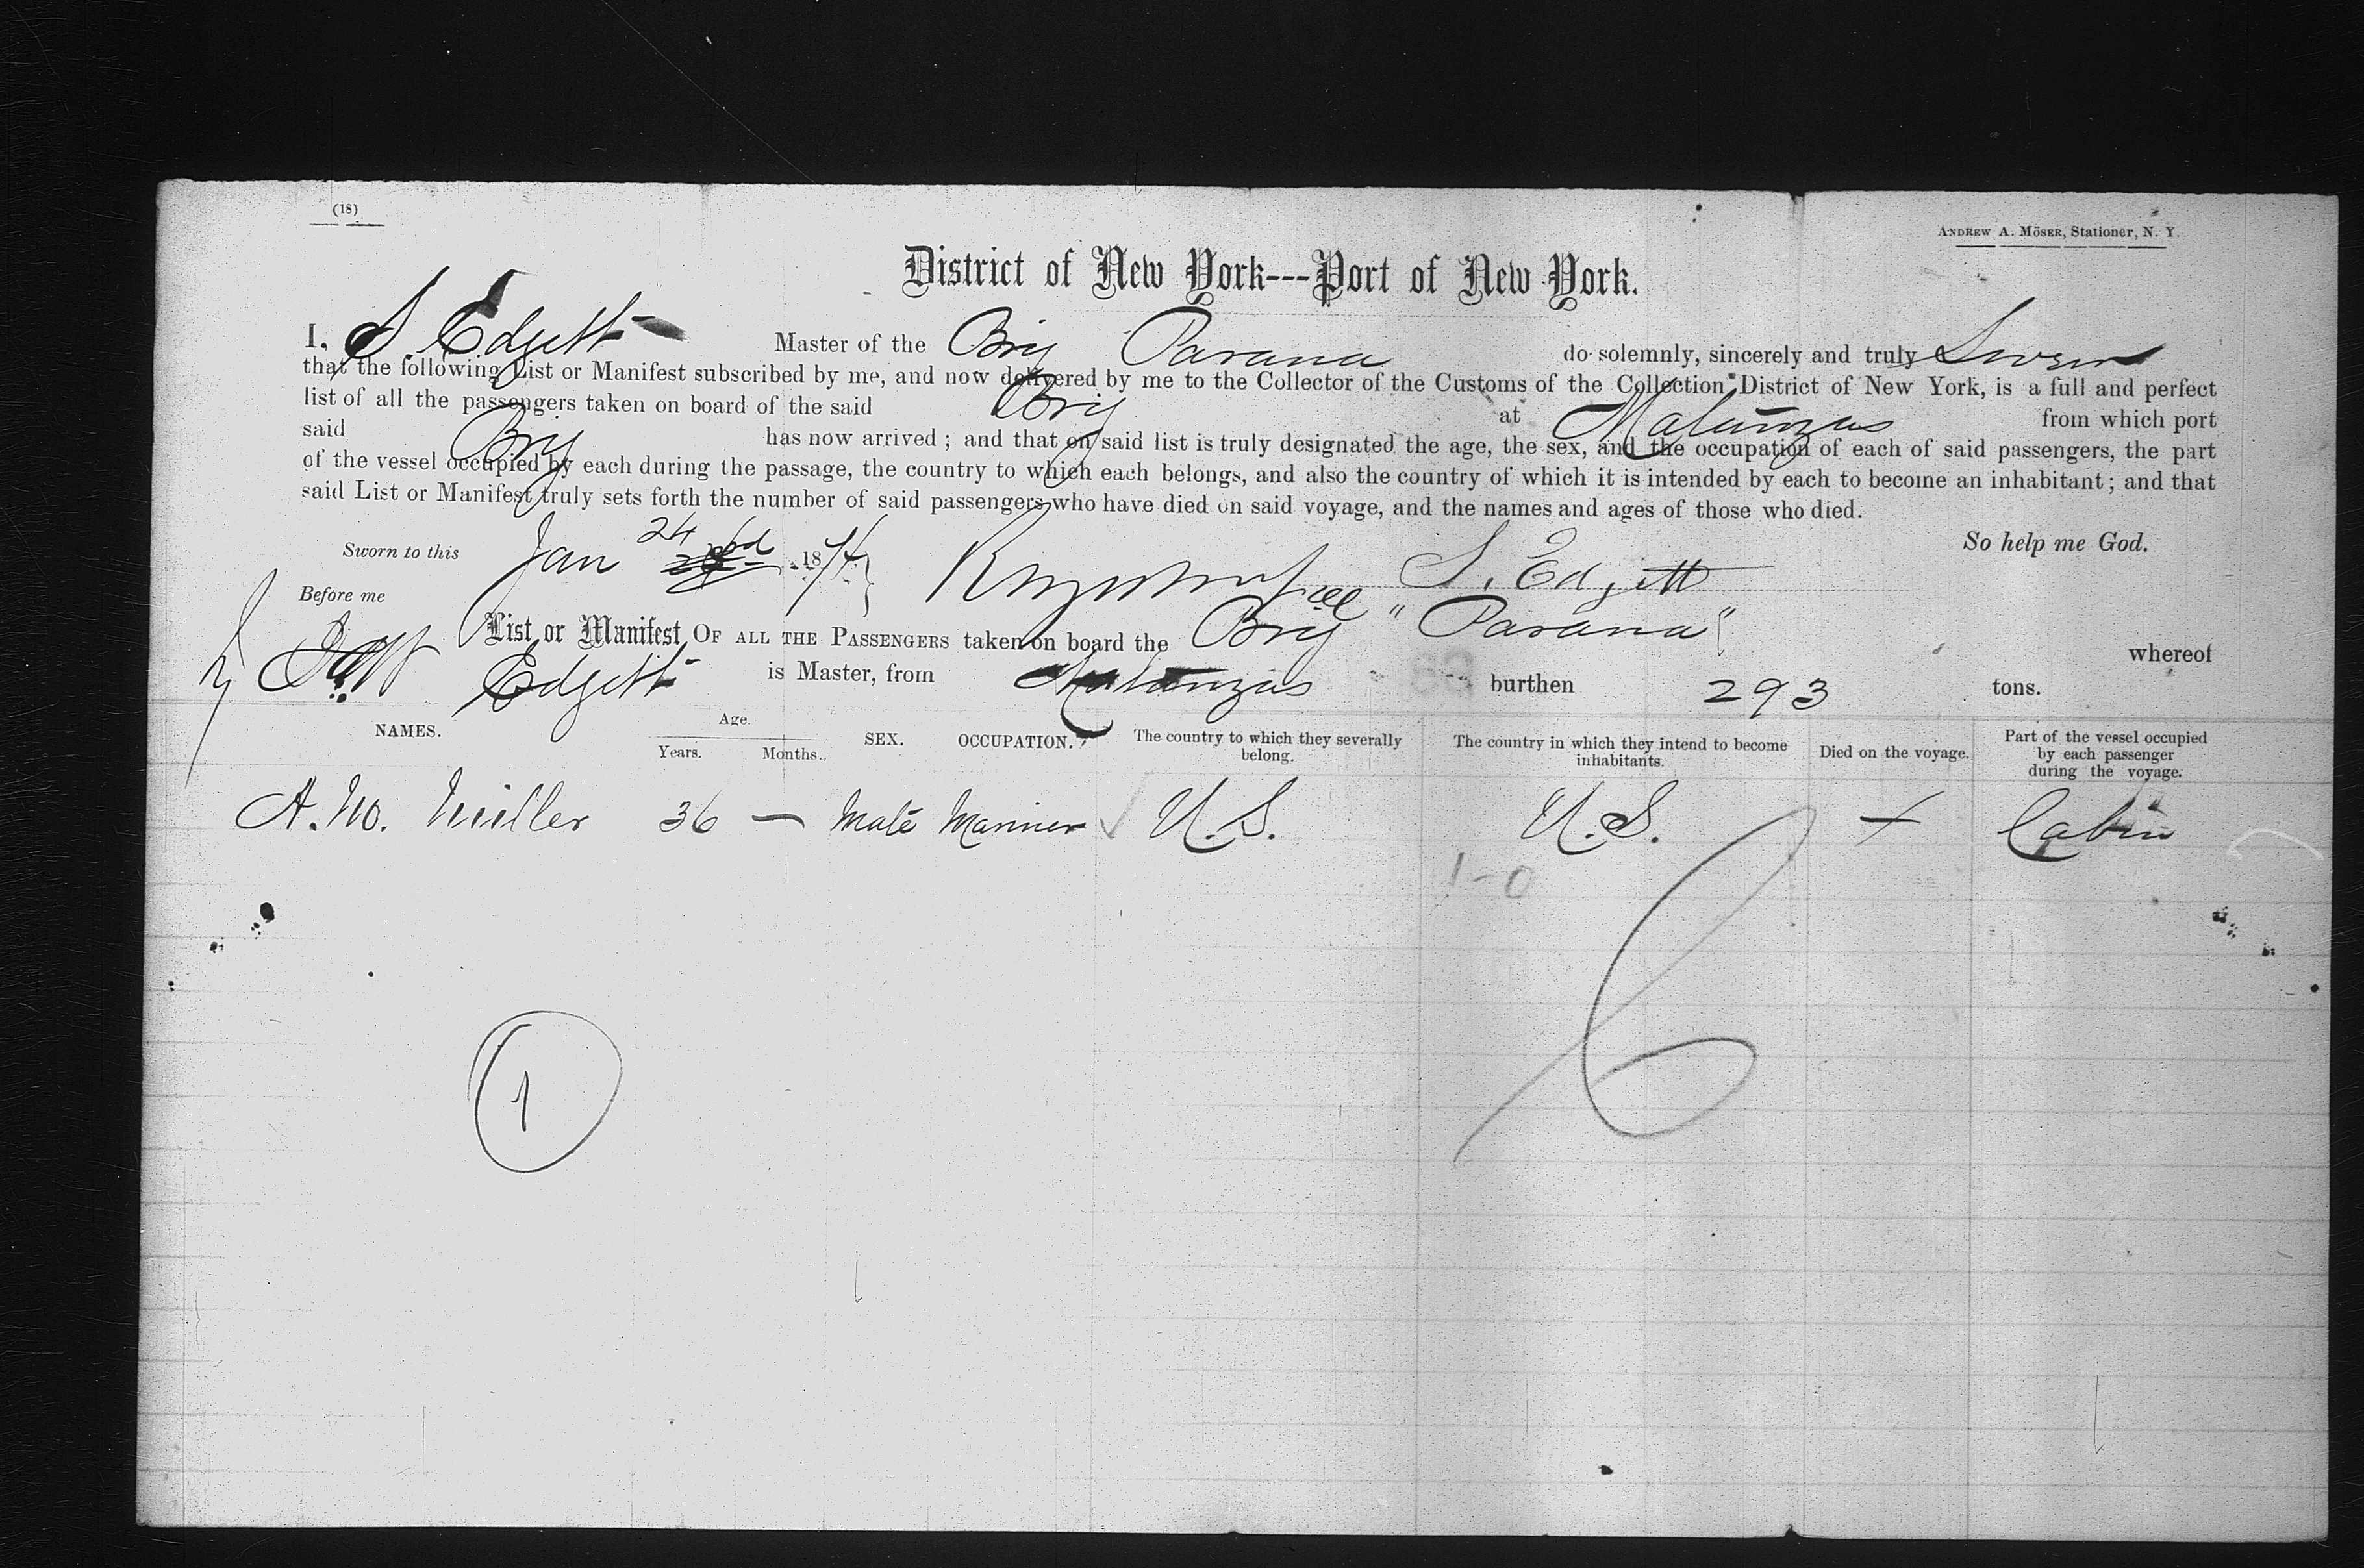 (18)
ANDREW A. MÖSER, Stationer, N. Y.
District of New York---Port of New York.
I, S. Edgett Master of the Brig Parana do solemnly, sincerely and truly Swear
that the following List or Manifest subscribed by me, and now delivered by me to the Collector of the Customs of the Collection District of New York, is a full and perfect
list of all the passengers taken on board of the said Brig at Matanzas from which port
said Brig has now arrived; and that on said list is truly designated the age, the sex, and the occupation of each of said passengers, the part
of the vessel occupied by each during the passage, the country to which each belongs, and also the country of which it is intended by each to become an inhabitant; and that
said List or Manifest truly sets forth the number of said passengers who have died on said voyage, and the names and ages of those who died.
So help me God.
Sworn to this Jan 24 1874 S. Edgett
Before me
List or Manifest OF ALL THE PASSENGERS taken on board the Brig "Parana" whereof
Edgett is Master, from Matanzas burthen 293 tons.
NAMES. Age. Years. Months. SEX. OCCUPATION. The country to which they severally belong. The country in which they intend to become inhabitants. Died on the voyage. Part of the vessel occupied by each passenger during the voyage.
A. W. Miller 36 — Male Mariner U.S. U.S. Cabin
1-0
6
1